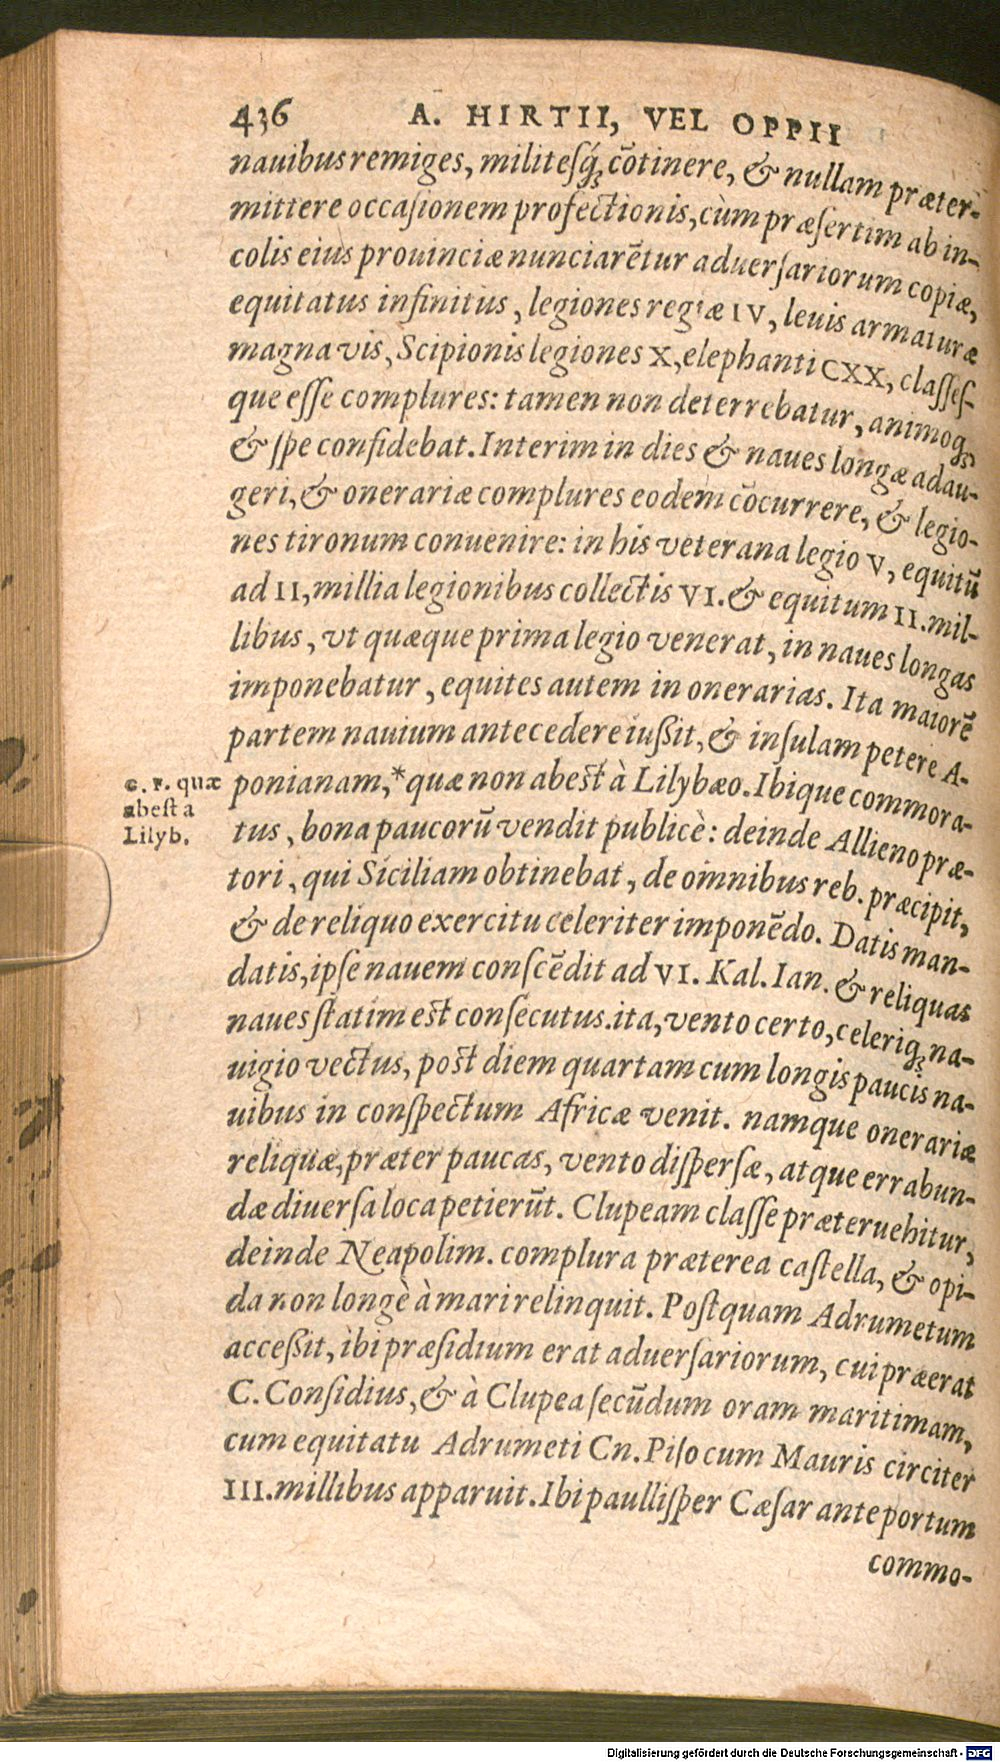 436 A. HIRTII, VEL OPPII
nauibus remiges, militesq́; cõtinere, & nullam præter-
mittere occasionem profectionis, cùm præsertim ab in-
colis eius prouinciæ nunciarẽtur aduersariorum copiæ,
equitatus infinitus, legiones regiæ IV, leuis armaturæ
magna vis, Scipionis legiones X, elephanti CXX, classes-
que esse complures: tamen non deterrebatur, animoq;
& spe confidebat. Interim in dies & naues longæ adau-
geri, & onerariæ complures eodem cõcurrere, & legio-
nes tironum conuenire: in his veterana legio V, equitũ
ad II, millia legionibus collectis VI. & equitum II. mil-
libus, vt quæque prima legio venerat, in naues longas
imponebatur, equites autem in onerarias. Ita maiorẽ
partem nauium antecedere iußit, & insulam petere A-
ponianam,* quæ non abest à Lilybæo. Ibique commora-
tus, bona paucorũ vendit publicè: deinde Allieno præ-
tori, qui Siciliam obtinebat, de omnibus reb. præcipit,
& de reliquo exercitu celeriter imponẽdo. Datis man-
datis, ipse nauem conscẽdit ad VI. Kal. Ian. & reliquas
naues statim est consecutus. ita, vento certo, celeriq; na-
uigio vectus, post diem quartam cum longis paucis na-
uibus in conspectum Africæ venit. namque onerariæ
reliquæ, præter paucas, vento dispersæ, atque errabun-
dæ diuersa loca petierũt. Clupeam classe præteruehitur,
deinde Neapolim. complura præterea castella, & opi-
da non longè à mari relinquit. Postquam Adrumetum
acceßit, ibi præsidium erat aduersariorum, cui præerat
C. Considius, & à Clupea secũdum oram maritimam,
cum equitatu Adrumeti Cn. Piso cum Mauris circiter
III. millibus apparuit. Ibi paullisper Cæsar ante portum
commo-
c. v. quæ
abest a
Lilyb.
Digitalisierung gefördert durch die Deutsche Forschungsgemeinschaft - DFG